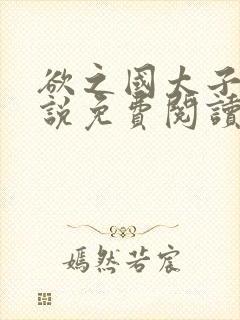 欲之國太子
說免費閱讀
嫣然若宸